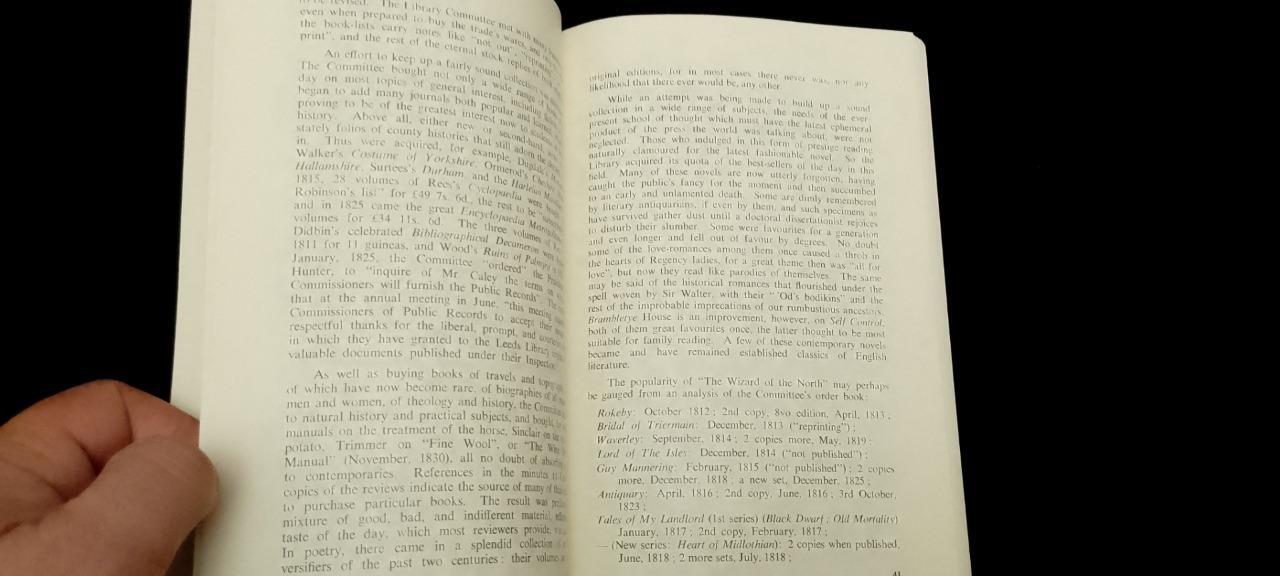 to be revised. The Library Committee met with many
even when prepared to buy the trade's wares, and
the book-lists carry notes like "not out", "reprinting",
print", and the rest of the eternal stock replies of
An effort to keep up a fairly sound collection was
The Committee bought not only a wide range of
day on most topics of general interest, including
began to add many journals both popular and learned,
proving to be of the greatest interest now to students
history. Above all, either new or second-hand,
stately folios of county histories that still adorn the
in. Thus were acquired, for example,
Walker's Costume of Yorkshire, Ormerod's
Hallamshire, Surtees's Durham, and the Harleian
1815, 28 volumes of Rees's Cyclopaedia were
Robinson's list" for £49 7s. 6d., the rest to be
and in 1825 came the great Encyclopaedia
volumes for £34 11s. 6d. The three volumes of
Didbin's celebrated Bibliographical Decameron were
1811 for 11 guineas, and Wood's Ruins of
January, 1825, the Committee "ordered" the
Hunter, to "inquire of Mr. Caley the terms on
Commissioners will furnish the Public Records".
that at the annual meeting in June, "this meeting
Commissioners of Public Records to accept their
respectful thanks for the liberal, prompt, and
in which they have granted to the Leeds Library
valuable documents published under their
As well as buying books of travels and
of which have now become rare, of biographies of
men and women, of theology and history, the
to natural history and practical subjects, and bought
manuals on the treatment of the horse, Sinclair on the
potato, Trimmer on "Fine Wool", or "The
Manual" (November, 1830), all no doubt of
to contemporaries. References in the minutes to
copies of the reviews indicate the source of many of
to purchase particular books. The result was
mixture of good, bad, and indifferent material,
taste of the day, which most reviewers provide,
In poetry, there came in a splendid collection of
versifiers of the past two centuries: their volumes
original editions, for in most cases there never was, nor any
likelihood that there ever would be, any other.
While an attempt was being made to build up a sound
collection in a wide range of subjects, the needs of the ever-
present school of thought which must have the latest ephemeral
product of the press the world was talking about, were not
neglected. Those who indulged in this form of prestige reading
naturally clamoured for the latest fashionable novel. So the
Library acquired its quota of the best-sellers of the day in this
field. Many of these novels are now utterly forgotten, having
caught the public's fancy for the moment and then succumbed
to an early and unlamented death. Some are dimly remembered
by literary antiquarians, if even by them, and such specimens as
have survived gather dust until a doctoral dissertationist rejoices
to disturb their slumber. Some were favourites for a generation
and even longer and fell out of favour by degrees. No doubt
some of the love-romances among them once caused a throb in
the hearts of Regency ladies, for a great theme then was "all for
love", but now they read like parodies of themselves. The same
may be said of the historical romances that flourished under the
spell woven by Sir Walter, with their "'Od's bodikins" and the
rest of the improbable imprecations of our rumbustious ancestors.
Brambletye House is an improvement, however, on Self Control,
both of them great favourites once, the latter thought to be most
suitable for family reading. A few of these contemporary novels
became and have remained established classics of English
literature.
The popularity of "The Wizard of the North" may perhaps
be gauged from an analysis of the Committee's order book:
Rokeby: October 1812; 2nd copy, 8vo edition, April, 1813;
Bridal of Triermain: December, 1813 ("reprinting");
Waverley: September, 1814; 2 copies more, May, 1819;
Lord of The Isles: December, 1814 ("not published");
Guy Mannering: February, 1815 ("not published"); 2 copies
more, December, 1818; a new set, December, 1825;
Antiquary: April, 1816; 2nd copy, June, 1816; 3rd October,
1823;
Tales of My Landlord (1st series) (Black Dwarf; Old Mortality)
January, 1817; 2nd copy, February, 1817;
— (New series: Heart of Midlothian): 2 copies when published,
June, 1818; 2 more sets, July, 1818;
41